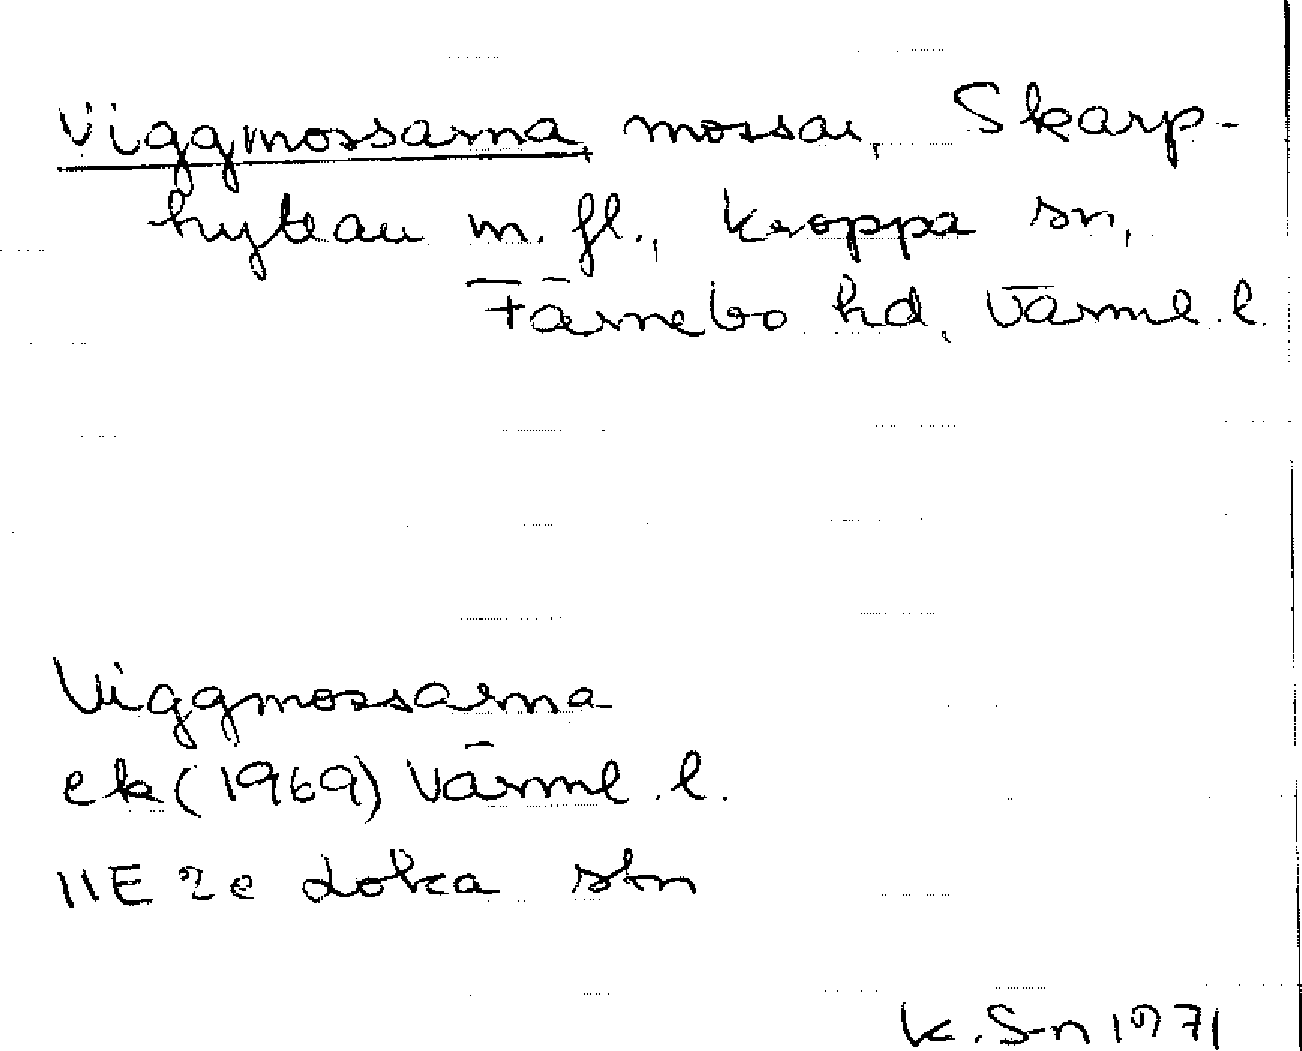 Viggmossarna, mossar, Skarp-
hyttan m. fl., Kroppa sn,
Färnebo hd, Värml. l.
Viggmossarna
ek (1969) Värml. l.
11E 2e Loka stn
K. S-n 1971